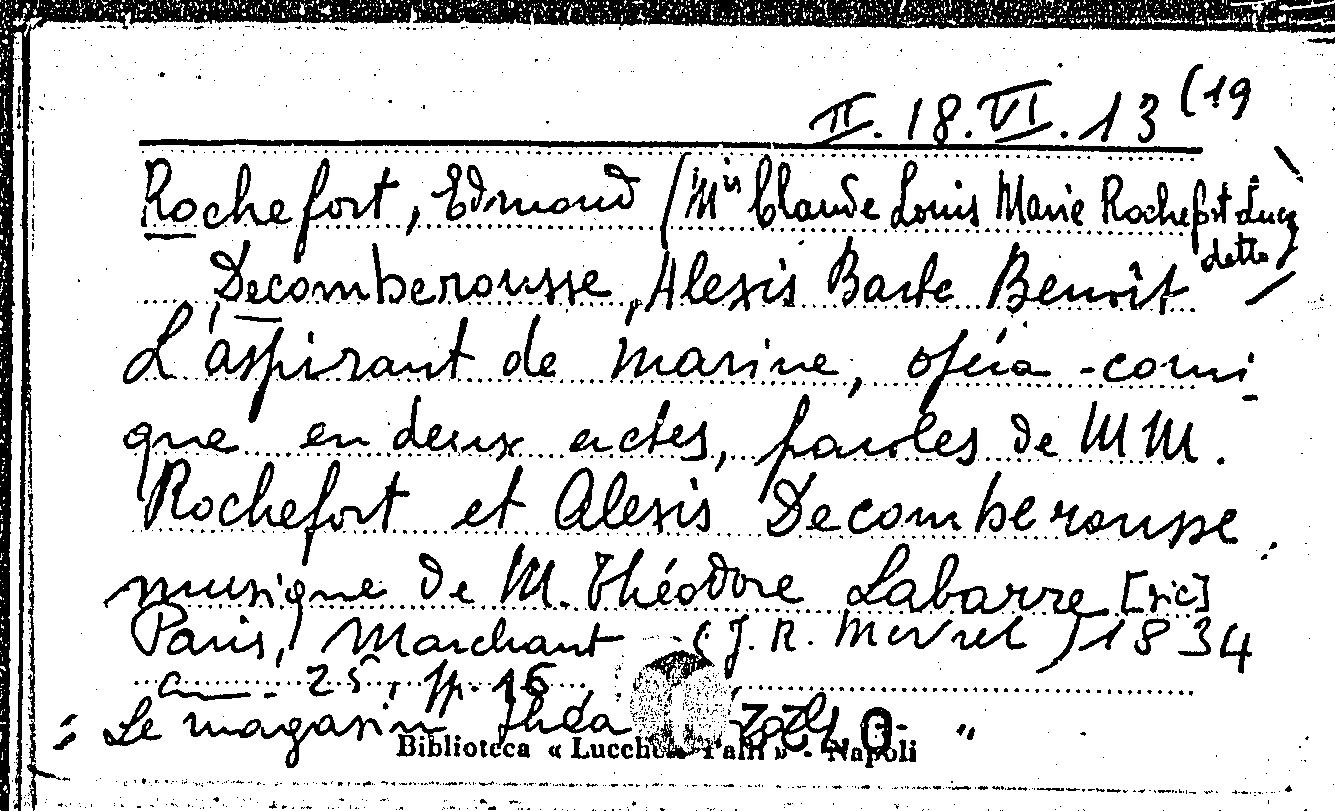 II. 18. VI. 13 (19
Rochefort, Edmond (Mis Claude Louis Marie Rochefort Luc
detto)
Decomberousse, Alexis Barbe Benoît
L'aspirant de marine, opéra-comi-
que en deux actes, paroles de MM.
Rochefort et Alexis Decomberousse,
musique de M. Théodore Labarre [sic]
Paris, Marchant (J. R. Mevrel) 1834
25, pp. 16
"Le magasin théa "
Biblioteca « Lucchesi Palli » - Napoli